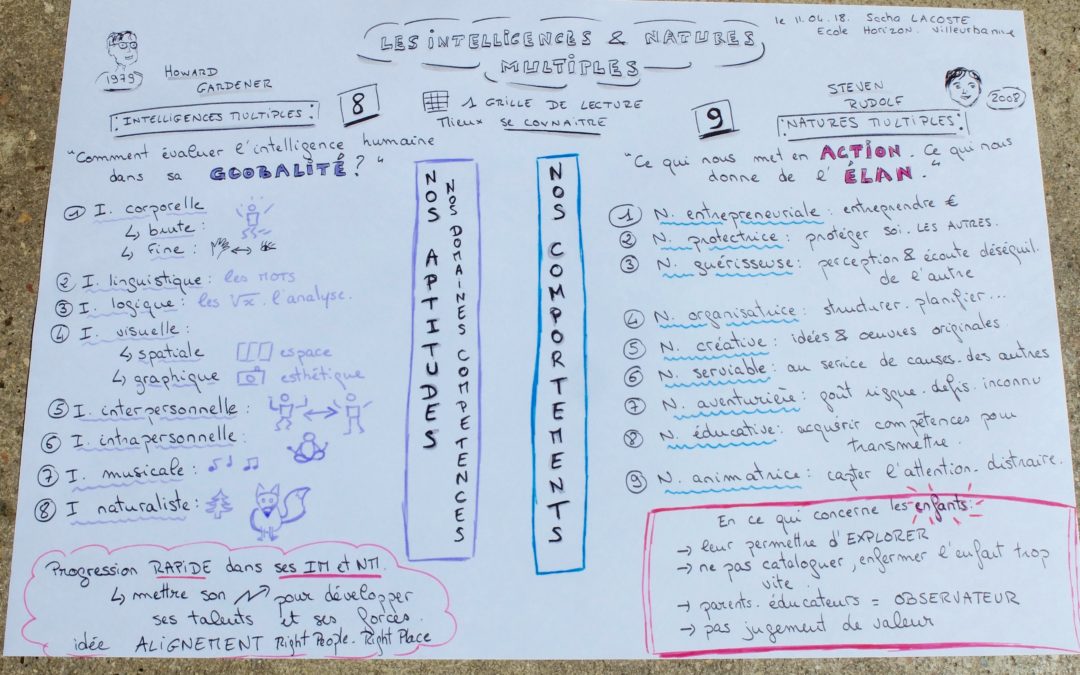 LES INTELLIGENCES & NATURES
MULTIPLES
le 11.04.18. Sacha LACOSTE
Ecole Horizon. Villeurbanne
1979
HOWARD
GARDENER
8
INTELLIGENCES MULTIPLES
1 GRILLE DE LECTURE
Mieux SE CONNAITRE
9
STEVEN
RUDOLF
2008
NATURES MULTIPLES
"Comment évaluer l'intelligence humaine
dans sa GLOBALITÉ ? "
① I. corporelle
↳ brute :
↳ Fine :
② I. linguistique : les MOTS
③ I. logique : les √x . l'analyse.
④ I. visuelle :
↳ spatiale espace
↳ graphique esthétique
⑤ I. interpersonnelle :
⑥ I. intrapersonnelle :
⑦ I. musicale :
⑧ I naturaliste :
NOS APTITUDES
NOS DOMAINES COMPETENCES
NOS COMPORTEMENTS
"Ce qui nous met en ACTION. Ce qui nous
donne de l' ÉLAN. "
① N. entrepreneuriale : entreprendre €
② N. protectrice : protéger soi. LES AUTRES.
③ N. guérisseuse : perception & écoute déséquil.
de l'autre
④ N. organisatrice : structurer. planifier...
⑤ N. créative : idées & oeuvres originales.
⑥ N. serviable : au service de causes. des autres
⑦ N. aventurière : goût risque. défis. inconnu
⑧ N. éducative : acquérir compétences pour
transmettre.
⑨ N. animatrice : capter l'attention. distraire.
Progression RAPIDE dans ses IM et NM.
↳ mettre son pour développer
ses talents et ses forces.
idée ALIGNEMENT Right People. Right Place
En ce qui concerne les enfants :
→ leur permettre d'EXPLORER
→ ne pas cataloguer, enfermer l'enfant trop
vite.
→ parents. éducateurs = OBSERVATEUR
→ pas jugement de valeur